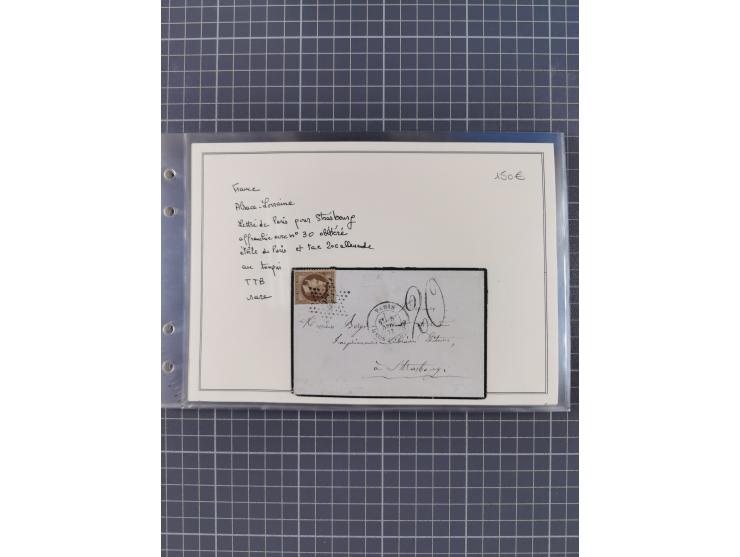 150€
France
Alsace-Lorraine
Lettre de Paris pour Strasbourg
affranchie avec n° 30 oblitéré
étoile de Paris et taxe 20c allemande
au tampon
TTB
rare
20
PARIS
à Strasbourg.